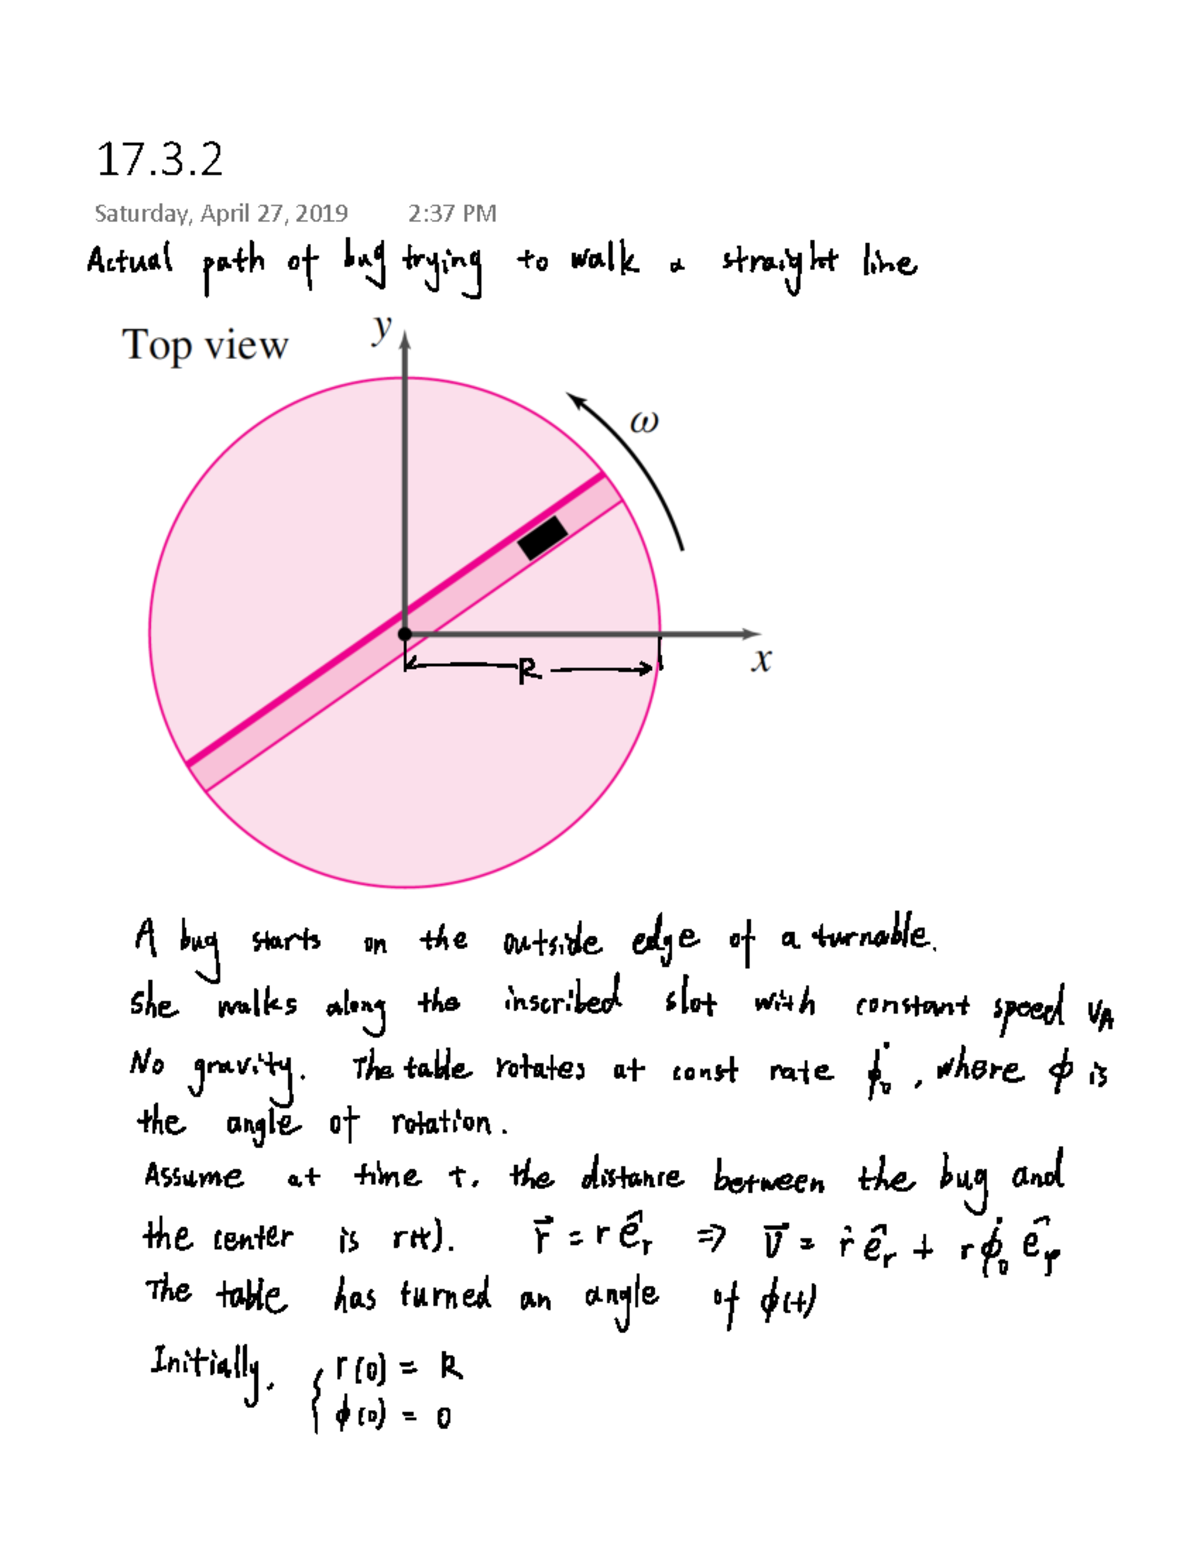 17.3.2
Saturday, April 27, 2019 2:37 PM
Actual path of bug trying to walk a straight line
Top view
y
ω
x
R
A bug starts on the outside edge of a turnable.
She walks along the inscribed slot with constant speed v_A
No gravity. The table rotates at const rate φ̇₀, where φ is
the angle of rotation.
Assume at time t. the distance between the bug and
the center is r(t). r⃗ = r ê_r ⇒ v⃗ = ṙ ê_r + r φ̇₀ ê_φ
The table has turned an angle of φ(t)
Initially. { r(0) = R
φ(0) = 0